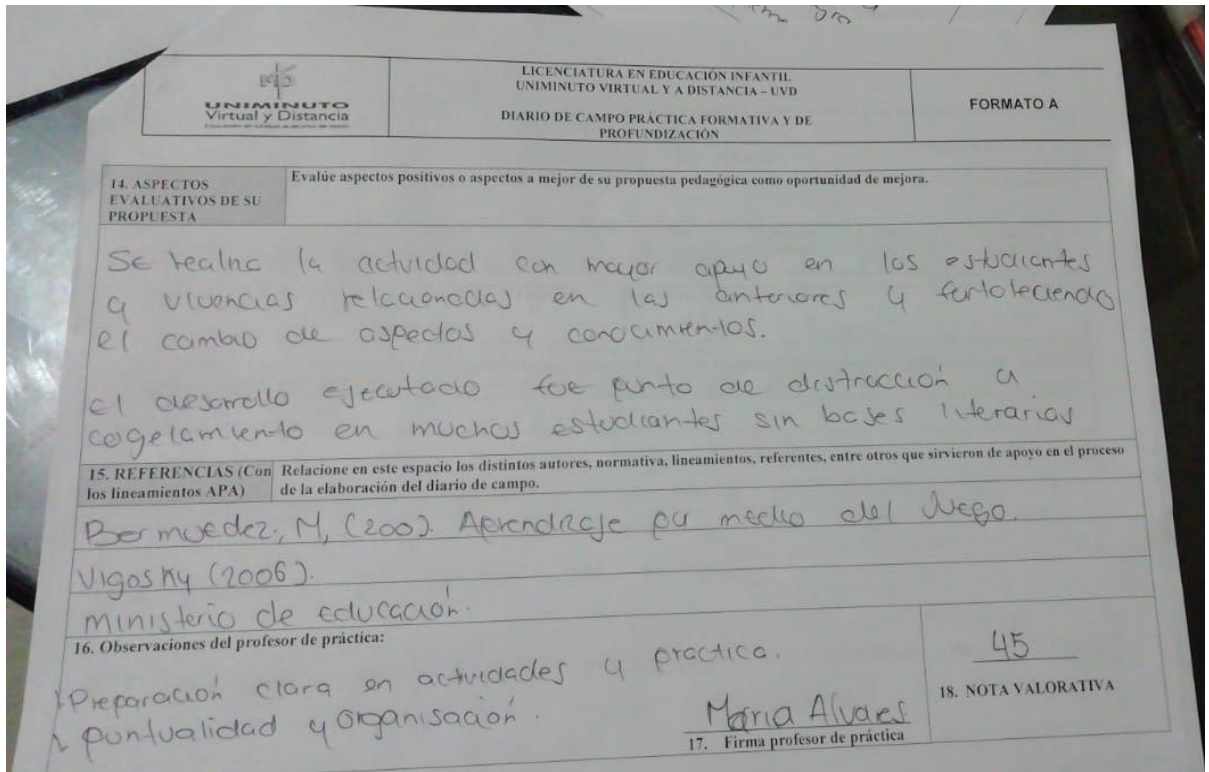 UNIMINUTO
Virtual y Distancia
LICENCIATURA EN EDUCACIÓN INFANTIL
UNIMINUTO VIRTUAL Y A DISTANCIA – UVD
DIARIO DE CAMPO PRÁCTICA FORMATIVA Y DE
PROFUNDIZACIÓN
FORMATO A
14. ASPECTOS
EVALUATIVOS DE SU
PROPUESTA
Evalúe aspectos positivos o aspectos a mejor de su propuesta pedagógica como oportunidad de mejora.
Se la actividad con mayor apoyo en los estudiantes
y vivencias relacionadas en las anteriores y fortoleciendo
el cambio de aspectos y conocimientos.
El desarrollo ejecutado fue punto de distracción a
cogelamiento en muchos estudiantes sin bases literarias
15. REFERENCIAS (Con
los lineamientos APA)
Relacione en este espacio los distintos autores, normativa, lineamientos, referentes, entre otros que sirvieron de apoyo en el proceso
de la elaboración del diario de campo.
Bermuedez, M, (200). Aprendizaje por medio del Juego.
Vigosky (2006).
ministerio de educación.
16. Observaciones del profesor de práctica:
Preparación clara en actividades y practica.
puntualidad y organisación.
Maria Alvares
17. Firma profesor de práctica
45
18. NOTA VALORATIVA